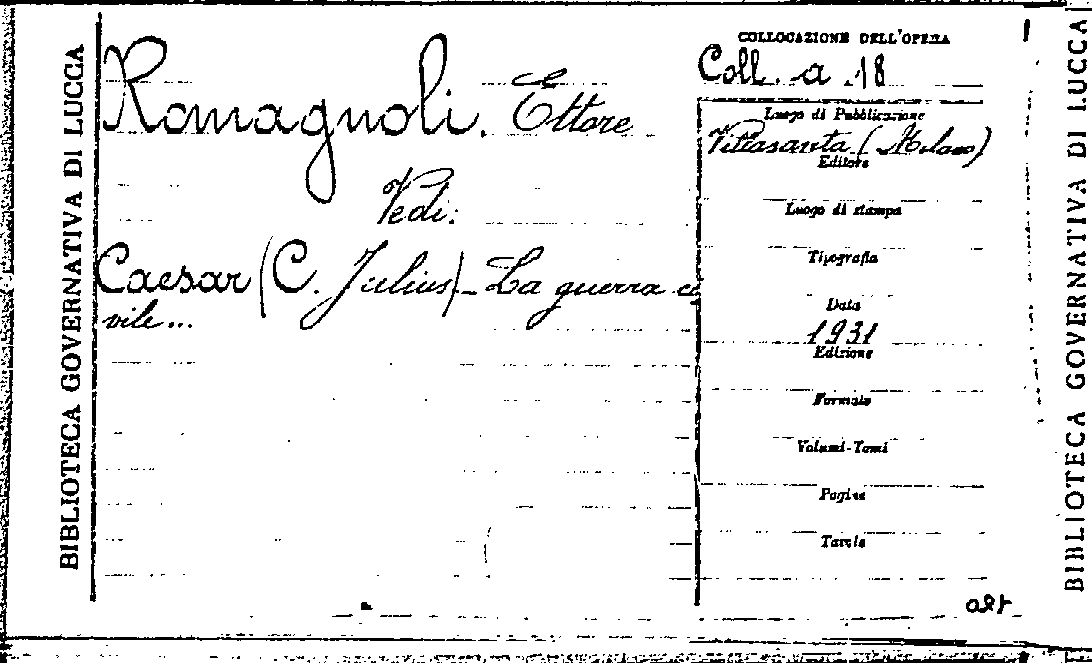 BIBLIOTECA GOVERNATIVA DI LUCCA
Romagnoli. Ettore
Vedi:
Caesar (C. Julius) - La guerra ci
vile...
COLLOCAZIONE DELL'OPERA
Coll. a. 18
Luogo di Pubblicazione
Villasanta (Milano)
Editore
Luogo di stampa
Tipografia
Data
1931
Edizione
Formato
Volumi-Tomi
Pagine
Tavole
BIBLIOTECA GOVERNATIVA DI LUCCA